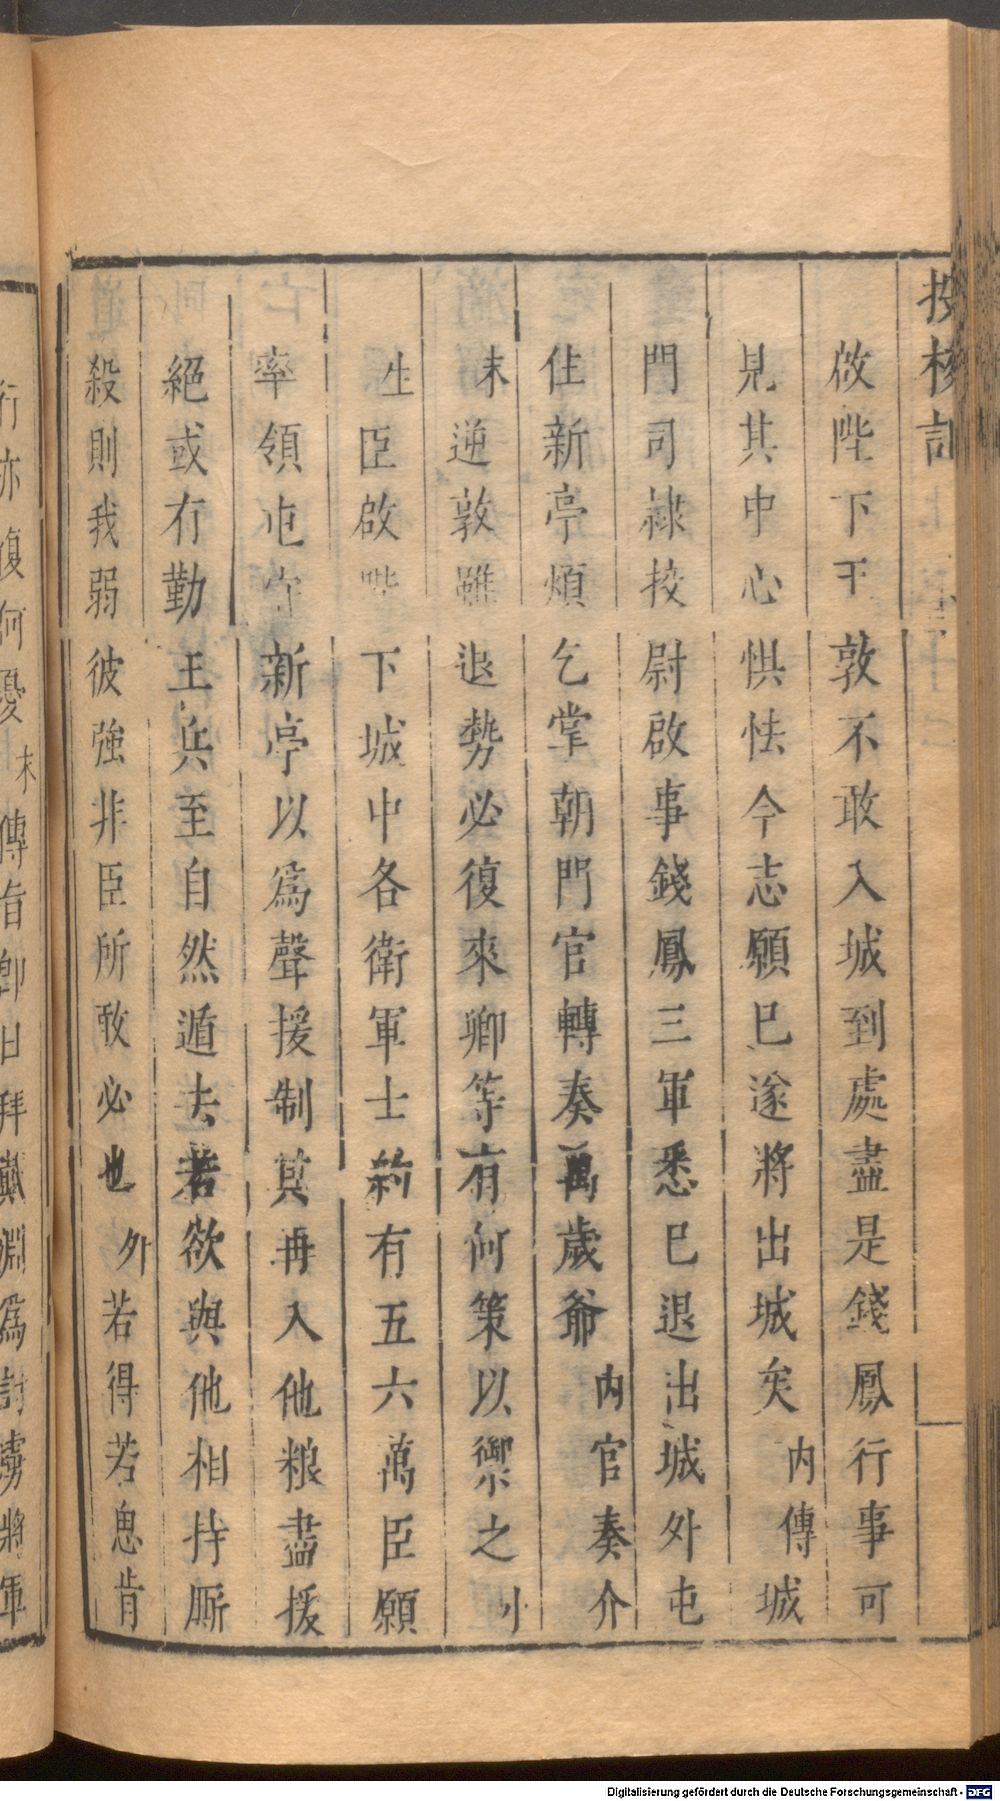 投梭記
啟陛下王敦不敢入城到處盡是錢鳳行事可
見其中心惧怯今志願巳遂將出城矣内傳城
門司隷挍尉啟事錢鳳三軍悉巳退出城外屯
住新亭煩乞掌朝門官轉奏萬歲爺内官奏介
末逆敦雖退勢必復來卿等有何策以禦之小
生臣啟陛下城中各衛軍士約有五六萬臣願
率領屯守新亭以爲聲援制其再入他粮盡援
絕或有勤王兵至自然遁去若欲與他相持厮
殺則我弱彼強非臣所敢必也外若得若思肯
行亦復何憂末傳旨卽日拜戴淵爲討虜將軍
Digitalisierung gefördert durch die Deutsche Forschungsgemeinschaft - DFG